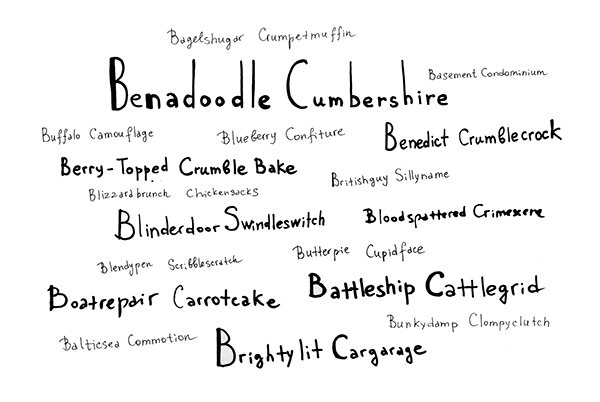 Bagelshugar Crumpetmuffin
Benadoodle Cumbershire
Basement Condominium
Buffalo Camouflage
Blueberry Confiture
Benedict Crumblecrock
Berry-Topped Crumble Bake
Britishguy Sillyname
Blizzardbrunch Chickensocks
Blinderdoor Swindleswitch
Bloodspattered Crimescene
Blendypen Scribblescratch
Butterpie Cupidface
Boatrepair Carrotcake
Battleship Cattlegrid
Bunkydamp Clompyclutch
Balticsea Commotion
Brightylit Cargarage